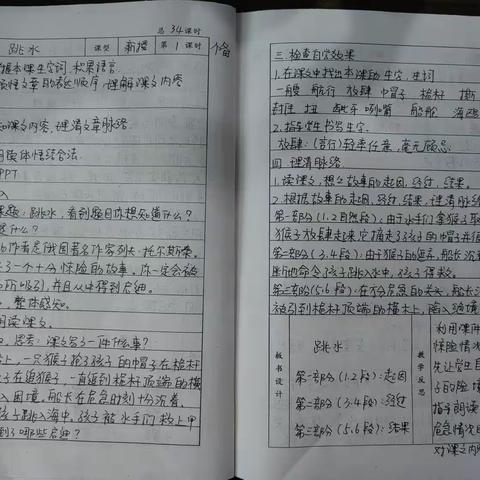 总 34 课时
跳水 课型 新授 第 1 课时 个备
掌握本课生字词,积累语言
文章的表达顺序,理解课文内容
知课文内容,理清文章脉络
媒体情结合法
PPT
入
课题:跳水,看到题目你想知道什么?
是什么?
的作者是俄国著名作家列夫·托尔斯泰。
了一个十分惊险的故事。你一定会被
所吸引,并且从中得到启迪。
,整体感知。
朗读课文。
,思考:课文写了一件什么事?
上,一只猴子抢了孩子的帽子在桅杆
子在追猴子,一直追到桅杆顶端的横
入困境,船长在危急时刻十分沉着,
孩子跳入海中。孩子被水手们救上甲
到了哪些启迪?
三、检查自学效果
1.在课文中找出本课的生字,生词
一艘 航行 放肆 帽子 桅杆 撕
扭 龇牙咧嘴 船舱 海鸥
2.指导学生书写生字.
放肆:(言行)轻率任意,毫无顾忌.
四、理清脉络.
1.读课文,想想故事的起因,经过,结果。
2.根据故事的起因,经过,结果,理清脉络
第一部分(1.2自然段):由于水手们拿猴子取
猴子放肆起来,它摘走了孩子的帽子并很
第二部分(3.4段):由于猴子的逗弄,
断地命令孩子跳入水中,孩子得救。
第三部分(5.6段):在万分危急的关头,船长沉
被引到桅杆顶端的横木上,陷入绝境
板书设计
跳水
第一部分(1.2段):起因
第二部分(3.4段):经过
第三部分(5.6段):结果
教学反思
利用课件
惊险情况
先让学生自
子的险境
指导朗读
危急情况的
对课文内